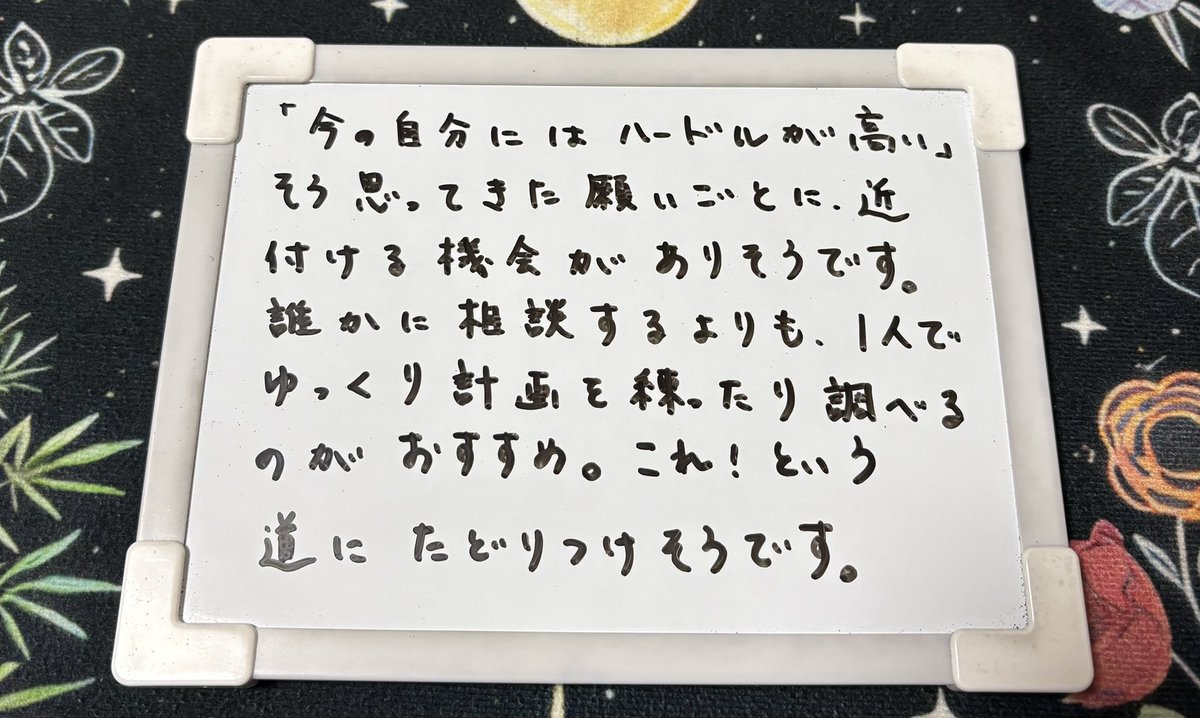 「今の自分にはハードルが高い」
そう思ってきた願いごとに、近
付ける機会がありそうです。
誰かに相談するよりも、1人で
ゆっくり計画を練ったり調べる
のがおすすめ。これ!という
道にたどりつけそうです。